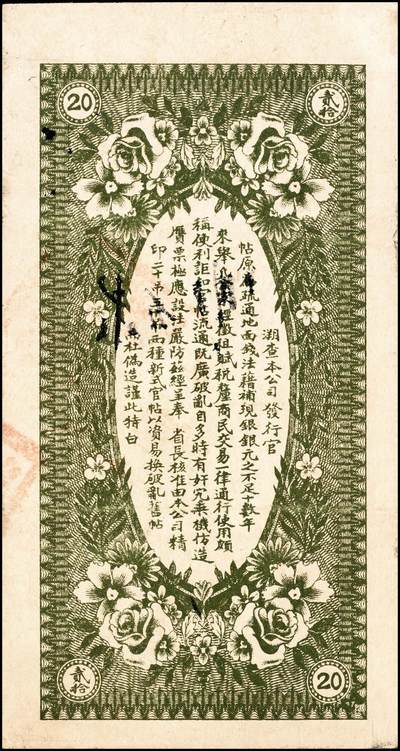 20
貳拾
溯查本公司發行官
帖原為疏通地面錢法藉補現銀銀元之不足十數年
來舉經徵租賦稅釐商民交易一律通行使用頗
稱便利詎知官帖流通既廣破亂自多時有奸宄乘機仿造
贗票極應設法嚴防茲經呈奉 省長核准由本公司精
印二十吊兩種新式官帖以資易換破亂舊帖
杜僞造謹此特白
貳拾
20